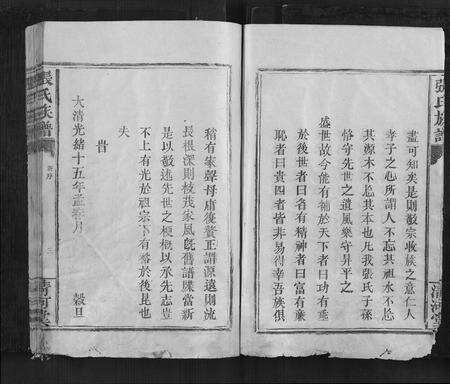 張氏族譜
盡可知矣是則敬宗收族之意仁人
孝子之心所謂人不忘其祖水不忘
其源木不忘其本也凡我張氏子孫
恪守先世之遺風樂守昇平之
盛世故今能有補於天下者曰功有垂
於後世者曰名有精神者曰富有廉
恥者曰貴四者皆非易得幸吾族俱
清河堂
稍有家聲毋庸復贅正謂源遠則流
長根深則枝茂家風旣舊譜牒當新
是以敬述先世之梗概以承先志豈
不上有光於祖宗下有裕於後昆也
夫
旹
大清光緒十五年孟春月
穀旦
張氏族譜
新序
三
清河堂